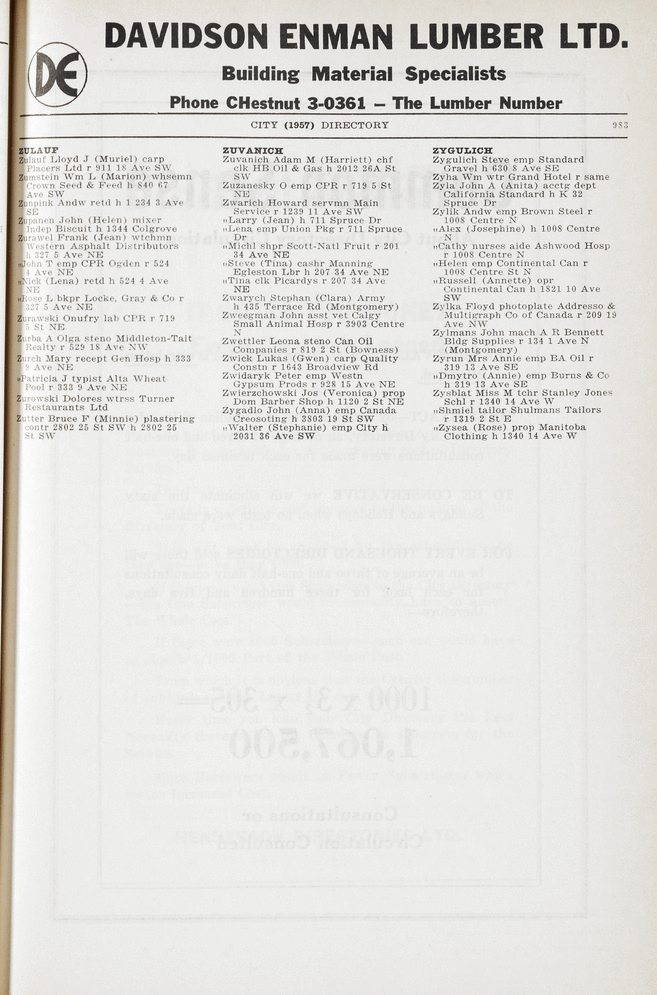 DE
DAVIDSON ENMAN LUMBER LTD.
Building Material Specialists
Phone CHestnut 3-0361 — The Lumber Number
CITY (1957) DIRECTORY 983
ZULAUF
Zulauf Lloyd J (Muriel) carp
Placers Ltd r 911 18 Ave SW
Zumstein Wm L (Marion) whsemn
Crown Seed & Feed h 840 67
Ave SW
Zunpink Andw retd h 1 234 3 Ave
SE
Zupanen John (Helen) mixer
Indep Biscuit h 1344 Colgrove
Zurawel Frank (Jean) wtchmn
Western Asphalt Distributors
h 327 5 Ave NE
"John T emp CPR Ogden r 524
4 Ave NE
"Nick (Lena) retd h 524 4 Ave
NE
"Rose L bkpr Locke, Gray & Co r
327 5 Ave NE
Zurawski Onufry lab CPR r 719
5 St NE
Zurba A Olga steno Middleton-Tait
Realty r 529 18 Ave NW
Zurch Mary recept Gen Hosp h 333
9 Ave NE
"Patricia J typist Alta Wheat
Pool r 333 9 Ave NE
Zurowski Dolores wtrss Turner
Restaurants Ltd
Zutter Bruce F (Minnie) plastering
contr 2802 25 St SW h 2802 25
St SW
ZUVANICH
Zuvanich Adam M (Harriett) chf
clk HB Oil & Gas h 2012 26A St
SW
Zuzanesky O emp CPR r 719 5 St
NE
Zwarich Howard servmn Main
Service r 1239 11 Ave SW
"Larry (Jean) h 711 Spruce Dr
"Lena emp Union Pkg r 711 Spruce
Dr
"Michl shpr Scott-Natl Fruit r 201
34 Ave NE
"Steve (Tina) cashr Manning
Egleston Lbr h 207 34 Ave NE
"Tina clk Picardys r 207 34 Ave
NE
Zwarych Stephan (Clara) Army
h 435 Terrace Rd (Montgomery)
Zweegman John asst vet Calgy
Small Animal Hosp r 3903 Centre
N
Zwettler Leona steno Can Oil
Companies r 819 2 St (Bowness)
Zwick Lukas (Gwen) carp Quality
Constn r 1643 Broadview Rd
Zwidaryk Peter emp Westn
Gypsum Prods r 928 15 Ave NE
Zwierzchowski Jos (Veronica) prop
Dom Barber Shop h 1120 2 St NE
Zygadlo John (Anna) emp Canada
Creosoting h 3803 19 St SW
"Walter (Stephanie) emp City h
2031 36 Ave SW
ZYGULICH
Zygulich Steve emp Standard
Gravel h 630 8 Ave SE
Zyha Wm wtr Grand Hotel r same
Zyla John A (Anita) acctg dept
California Standard h K 32
Spruce Dr
Zylik Andw emp Brown Steel r
1008 Centre N
"Alex (Josephine) h 1008 Centre
N
"Cathy nurses aide Ashwood Hosp
r 1008 Centre N
"Helen emp Continental Can r
1008 Centre St N
"Russell (Annette) opr
Continental Can h 1821 10 Ave
SW
Zylka Floyd photoplate Addresso &
Multigraph Co of Canada r 209 19
Ave NW
Zylmans John mach A R Bennett
Bldg Supplies r 134 1 Ave N
(Montgomery)
Zyrun Mrs Annie emp BA Oil r
319 13 Ave SE
"Dmytro (Annie) emp Burns & Co
h 319 13 Ave SE
Zysblat Miss M tchr Stanley Jones
Schl r 1340 14 Ave W
"Shmiel tailor Shulmans Tailors
r 1319 2 St E
"Zysea (Rose) prop Manitoba
Clothing h 1340 14 Ave W